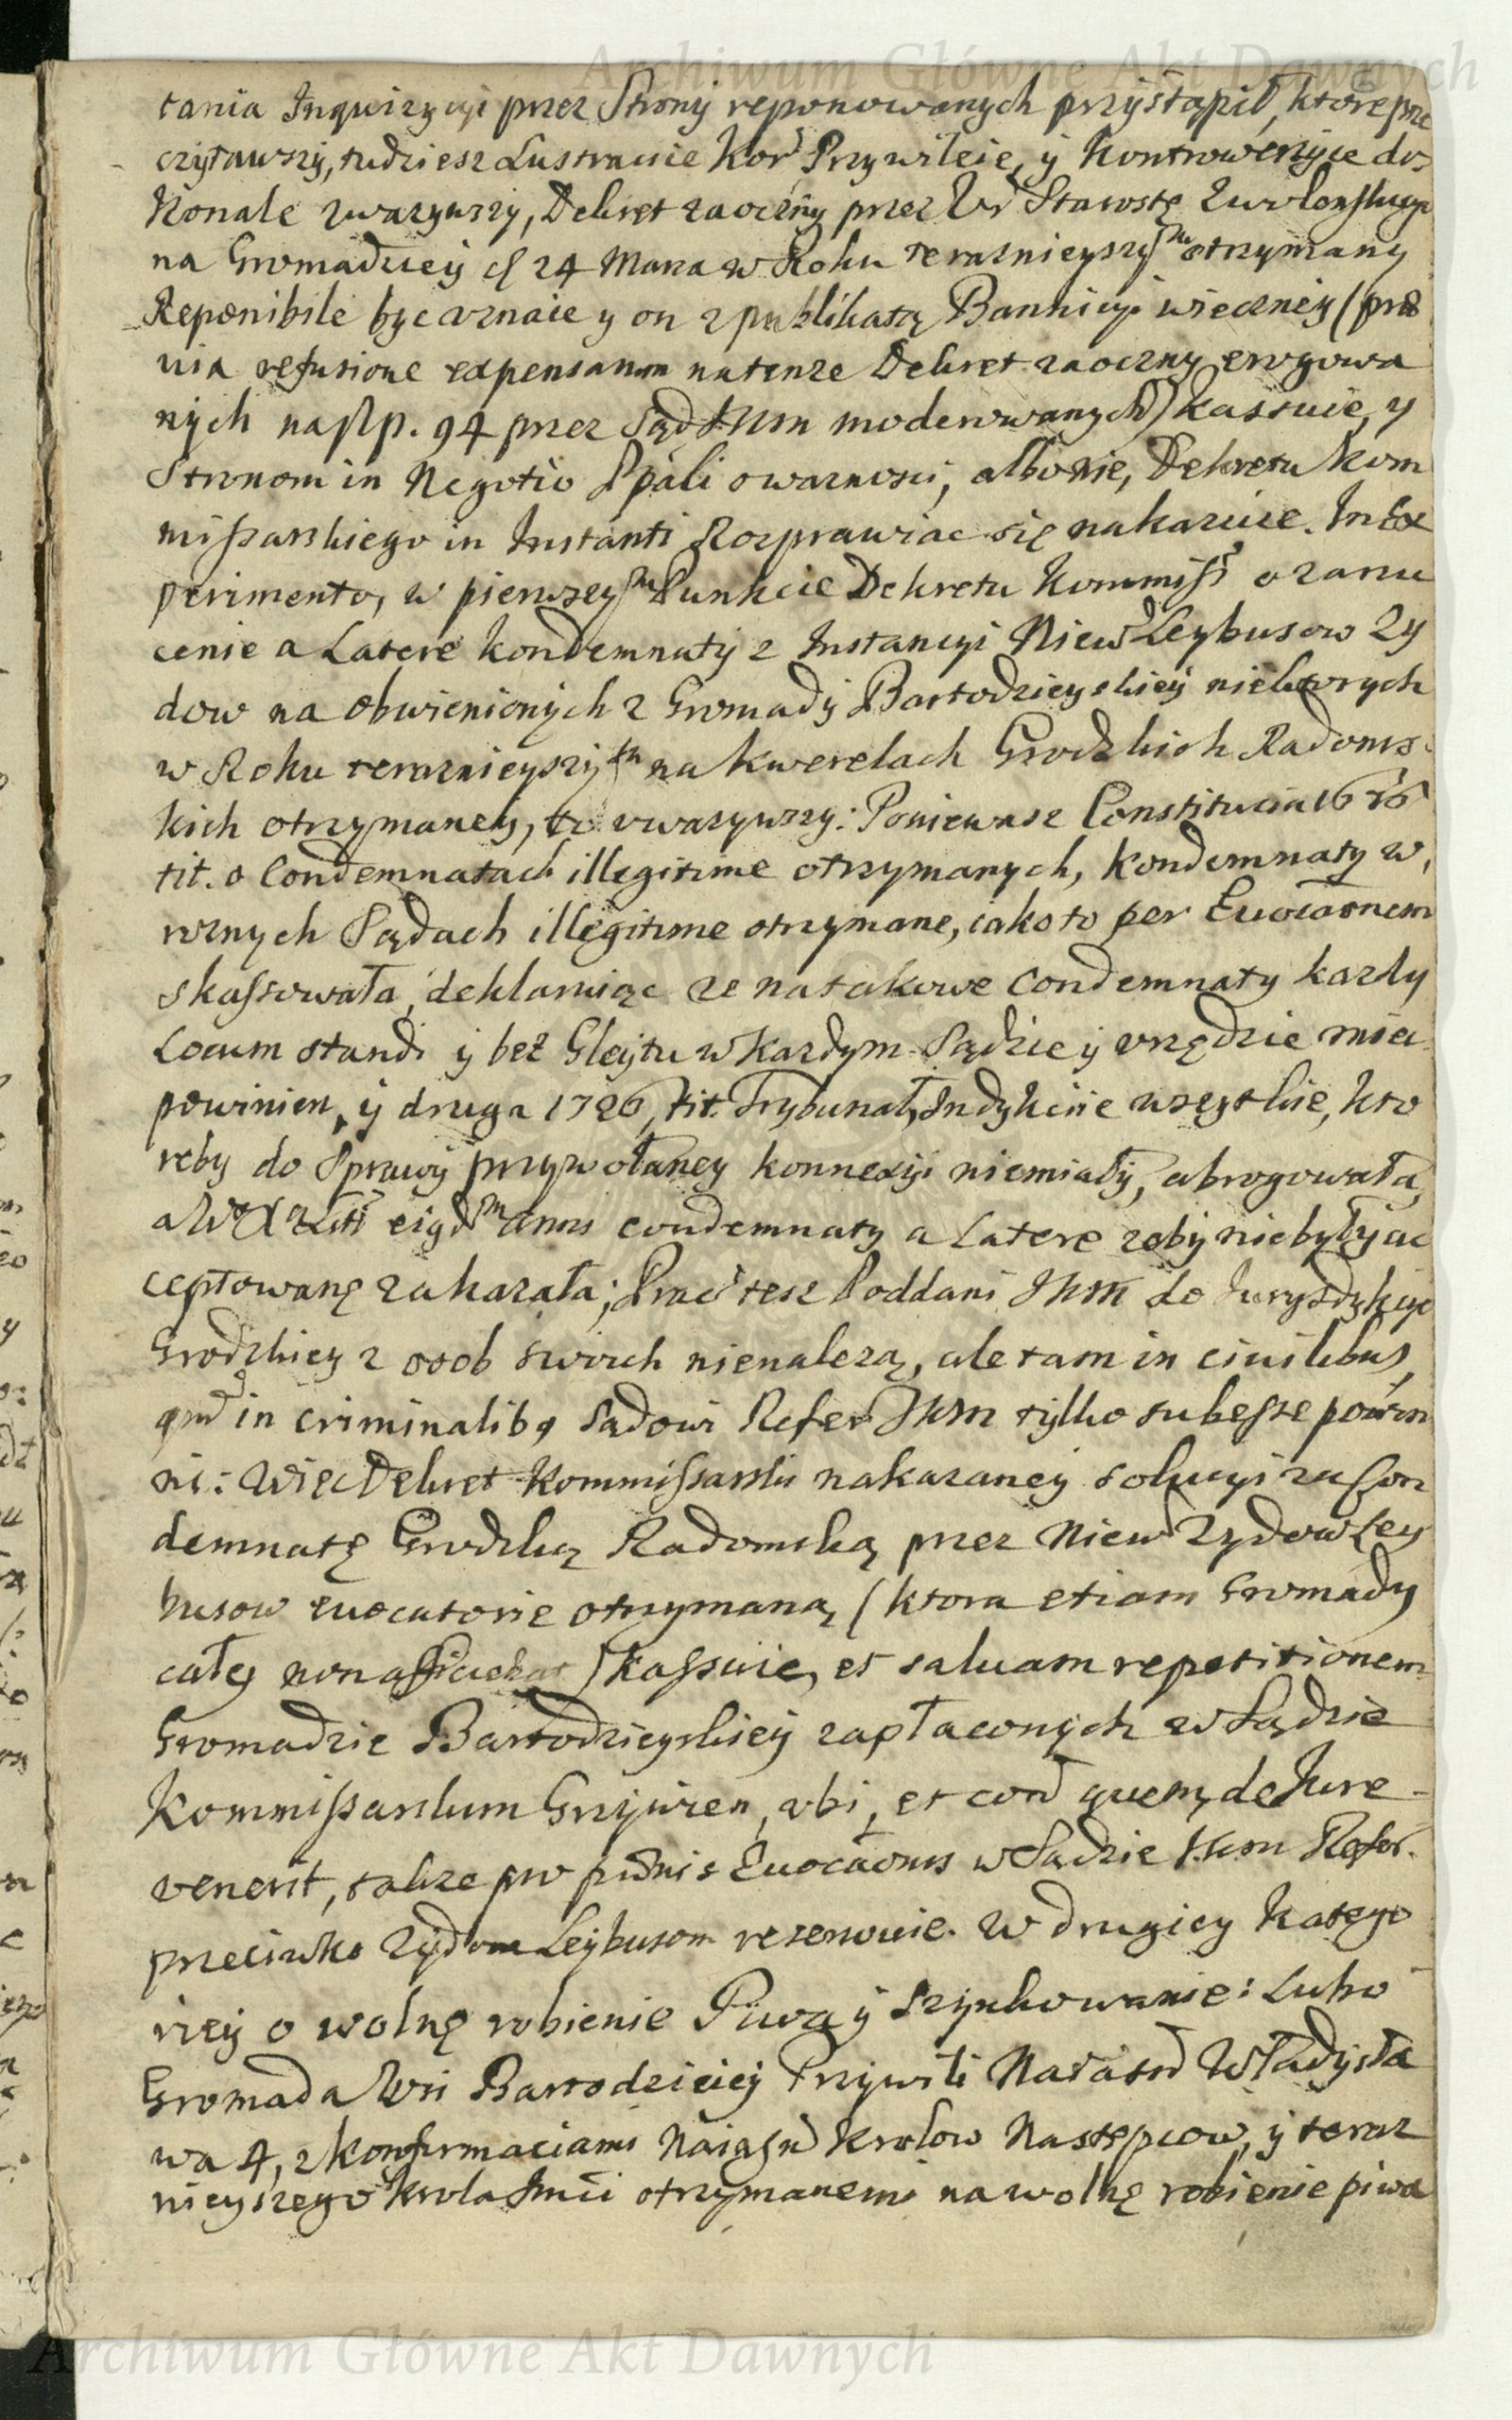 Archiwum Główne Akt Dawnych
tania Inquizycyi przez Strony reponowanych przystąpił, ktore prze
czytawszy, tudziesz Lustracie Kor Przywileie, y Kontrowersye dos
konale zwazywszy, Dekret zaoczny przez Ur Starostę
na Gromadzie 24 Marca w Roku teraznieyszym otrzymany
Reponibile byc uznaie y on z publikatą Bannicyi wieczney (prae
via refusione expensarum na tenze Dekret zaoczny erogowa
nych na złp. 94 przez Sąd JKM moderowanych) kassuie, y
Stronom in Negotio Ppali o waznosci, albo nie, Dekretu Kom
missarskiego in Instanti Rozprawiac się nakazuie. In Ex
perimento, w pierwszym Punkcie Dekretu Kommiss o zarzu
cenie a Latere kondemnaty z Instancyi Niew Leybusow Zy
dow na obwienionych z Gromady Bartodzieyskiey niektorych
w Roku teraznieyszym na kwerelach Grodzkich Radoms
kich otrzymaney, to uwazywszy: Poniewasz Constitucia
tit. o Condemnatach illegitime otrzymanych, kondemnaty w
roznych Sądach illegitime otrzymane, iako to per Euocaōnem
skassowała, deklaruiąc ze na takowe condemnaty kazdy
Locum standi y bez Gleytu w kazdym Sądzie y urzędzie miec
powinien, y druga 1726, tit. Trybunały, Indykcie wszystkie, kto
reby do Sprawy przywołaney konnexyi niemiały, abrogowała,
a eigd anni condemnaty a Latere zeby niebyły ac
ceptowane zakazała; tesz Poddani JKM do Jurysdykcyi
Grodzkiey z osob swoich nienalezą, ale tam in ciuilibus,
qm in criminalibq Sądowi Refer JKM tylko subesse powin
ni: Więc Dekret Kommissarski nakazaney solucyi za Con
demnatę Grodzką Radomską przez Niew Zydow Ley
busow euocatorie otrzymaną (ktora etiam Gromady
całey non afficiebat) kassuie, et saluam repetitionem
Gromadzie Bartodzieyskiey zapłaconych w Sądzie
Kommissarskum Grzywien, ubi, et con quem, de Jure
venerit, takze pro Euocaōnis w Sądzie JKM Refer.
przeciwko Zydom Leybusom rezerwuie. W drugiey Katego
ryey o wolne robienie Piwa y szynkowanie: Lubo
Gromada Wsi Bartodzieiey Przywili Władysła
wa 4, z konfirmaciami Naiaśn Krolow Następcow, y teraz
nieyszego Krola Jmći otrzymanemi na wolne robienie piwa
Archiwum Główne Akt Dawnych